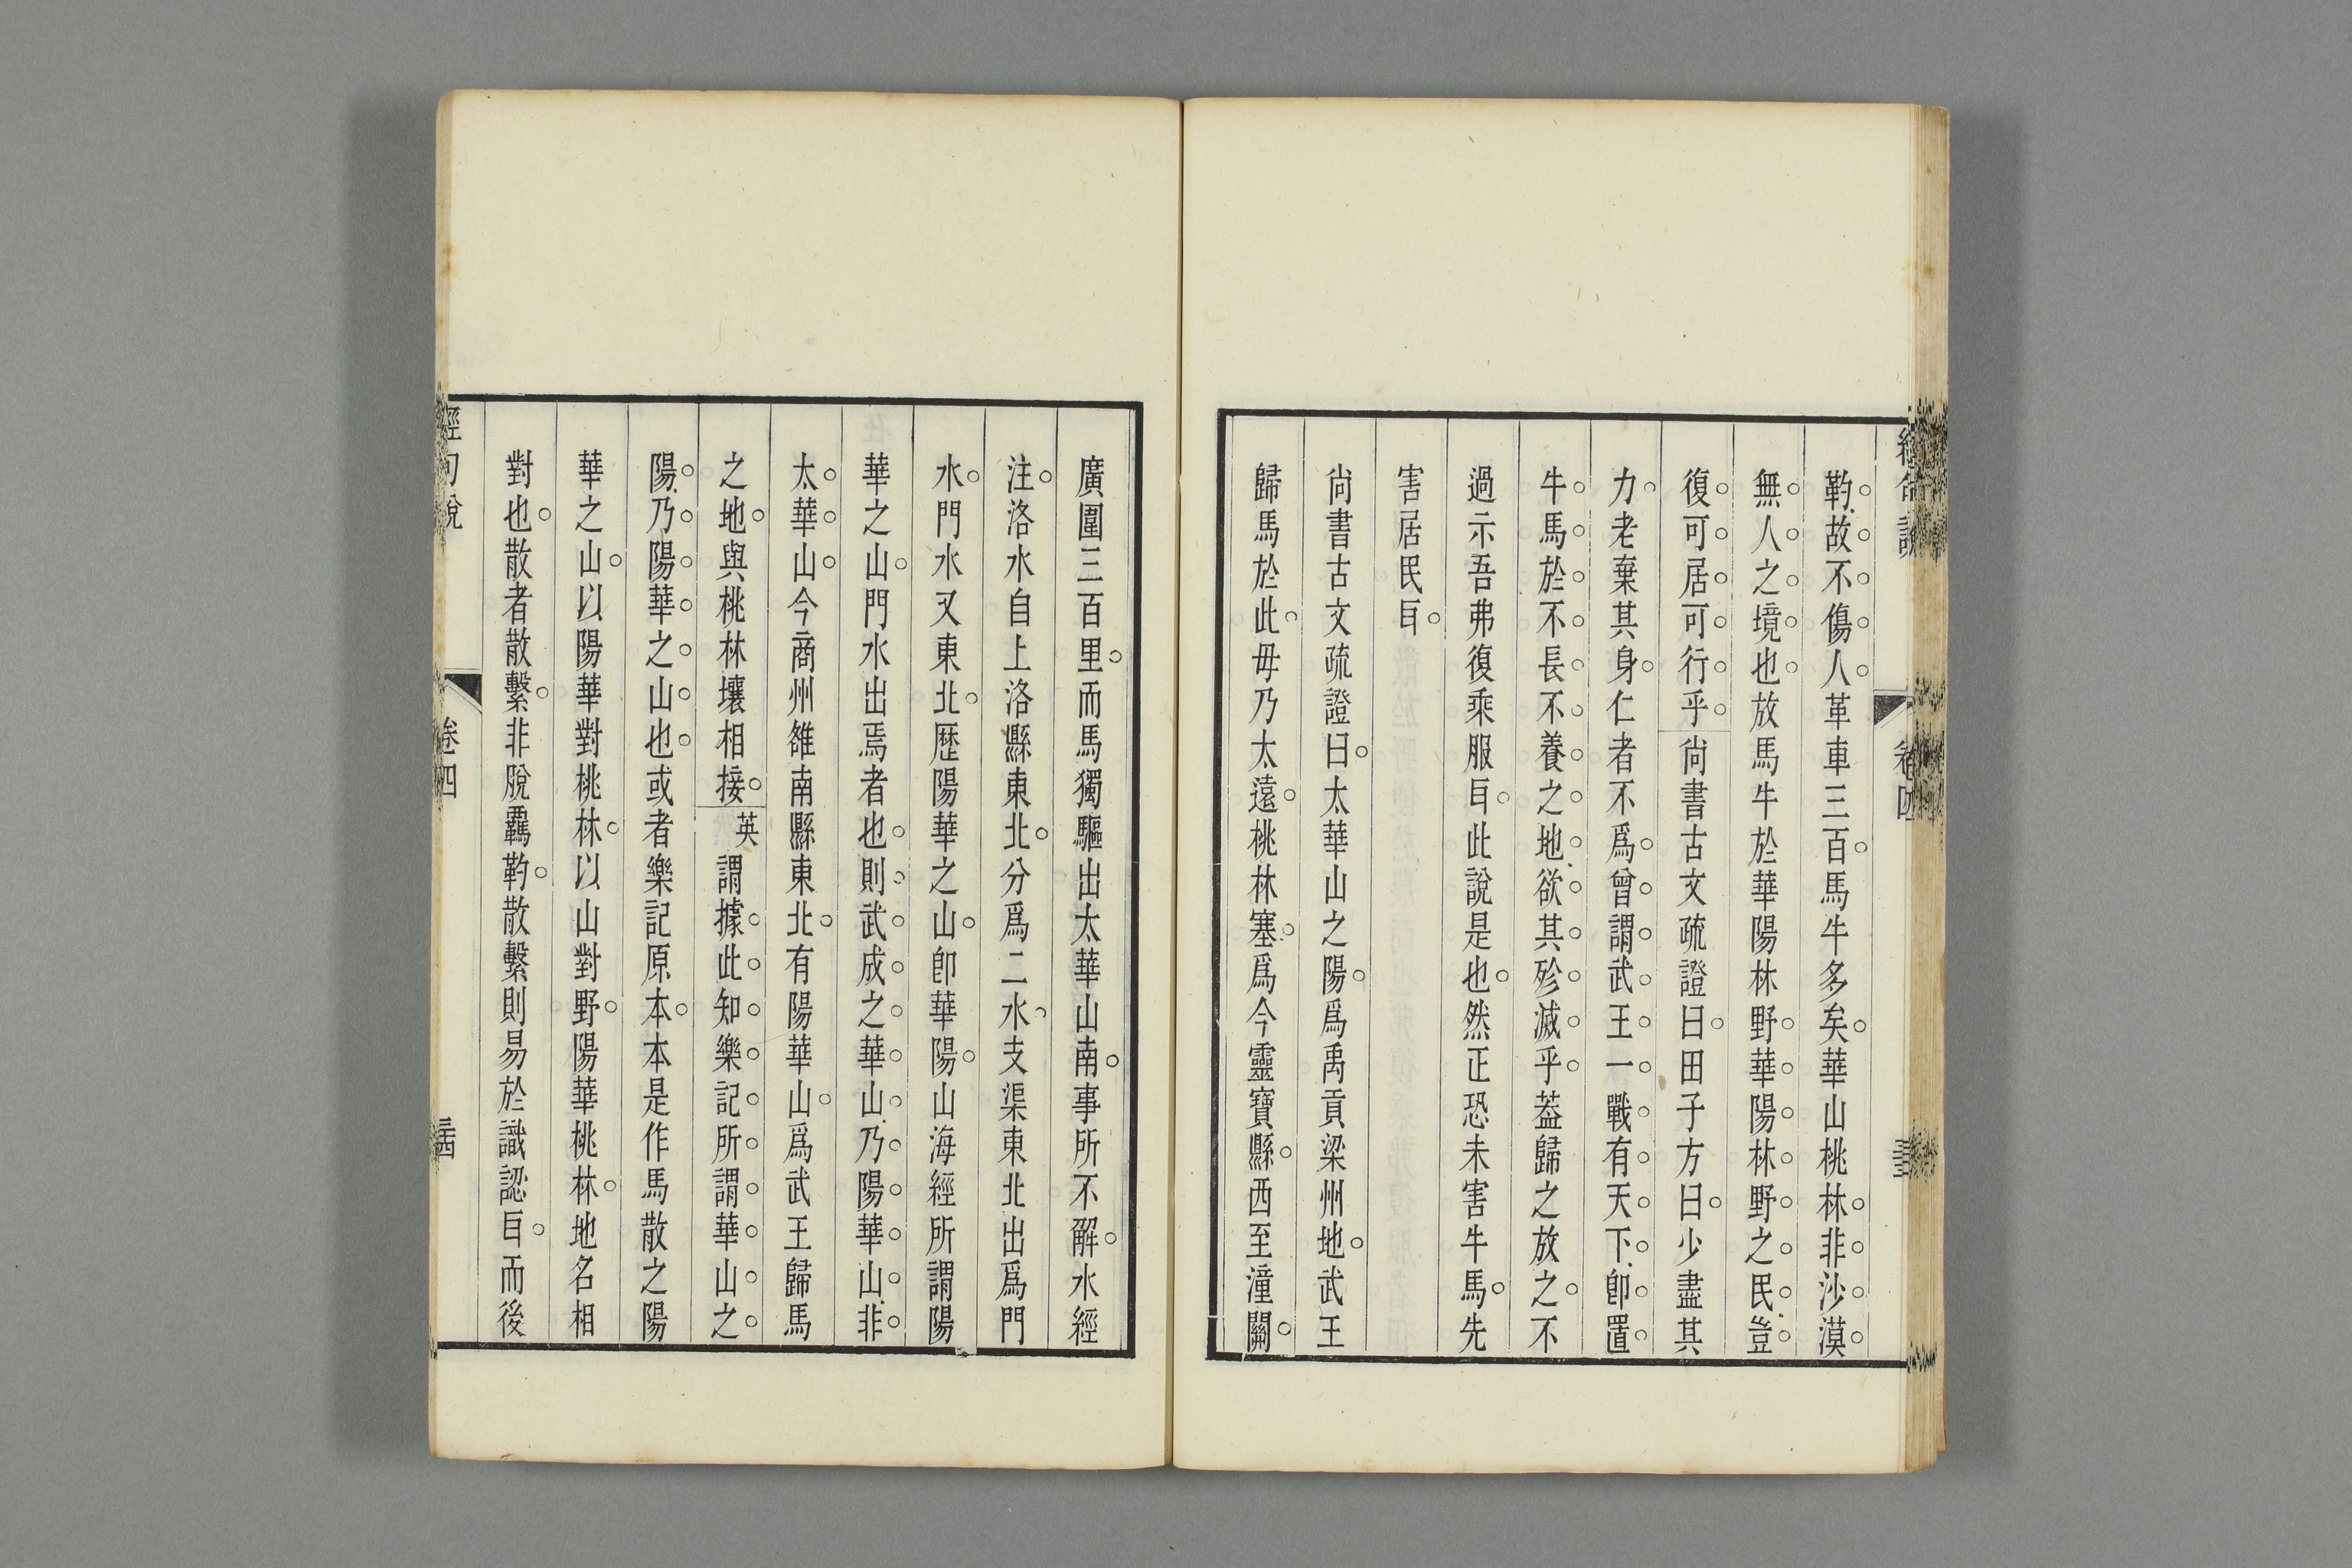 經句說
卷四
靮故不傷人革車三百馬牛多矣華山桃林非沙漠
無人之境也放馬牛於華陽林野華陽林野之民豈
復可居可行乎尙書古文疏證曰田子方曰少盡其
力老棄其身仁者不爲曾謂武王一戰有天下卽置
牛馬於不長不養之地欲其殄滅乎葢歸之放之不
過示吾弗復乘服㠯此說是也然正恐未害牛馬先
害居民㠯
尙書古文疏證曰太華山之陽爲禹貢梁州地武王
歸馬於此毋乃太遠桃林塞爲今靈寶縣西至潼關
廣圍三百里而馬獨驅出太華山南事所不解水經
注洛水自上洛縣東北分爲二水支渠東北出爲門
水門水又東北歷陽華之山卽華陽山海經所謂陽
華之山門水出焉者也則武成之華山乃陽華山非
太華山今商州雒南縣東北有陽華山爲武王歸馬
之地與桃林壤相接英謂據此知樂記所謂華山之
陽乃陽華之山也或者樂記原本本是作馬散之陽
華之山以陽華對桃林以山對野陽華桃林地名相
對也散者散繫非脫羈靮散繫則易於識認㠯而後
經句說
卷四